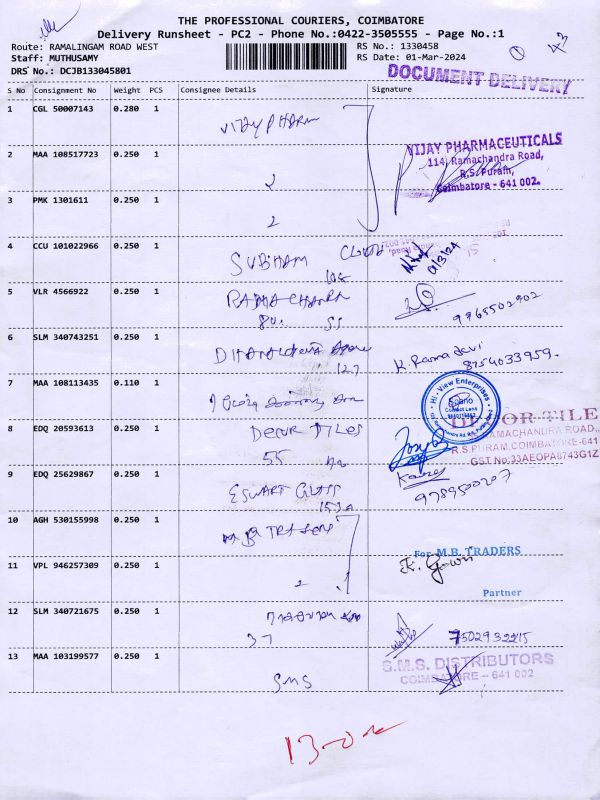 THE PROFESSIONAL COURIERS, COIMBATORE
Delivery Runsheet - PC2 - Phone No.:0422-3505555 - Page No.:1
Route: RAMALINGAM ROAD WEST
Staff: MUTHUSAMY
DRS No.: DCJB133045801
RS No.: 1330458
RS Date: 01-Mar-2024
43
DOCUMENT DELIVERY
S No Consignment No Weight PCS Consignee Details Signature
1 CGL 50007143 0.280 1 VIJAY PHARM
VIJAY PHARMACEUTICALS
114, Ramachandra Road,
R.S. Puram,
Coimbatore - 641 002.
2 MAA 108517723 0.250 1 2
3 PMK 1301611 0.250 1 2
4 CCU 101022966 0.250 1 SUBHAM
01/3/24
5 VLR 4566922 0.250 1 RAMACHANDRA
55
6 SLM 340743251 0.250 1
127
K. Ramadevi
8754033959.
7 MAA 108113435 0.110 1
Hi - View Enterprises
8 EDQ 20593613 0.250 1 DECOR TILES
55
DECOR TILE
RAMACHANDRA ROAD,
R.S.PURAM, COIMBATORE-641
GST No:33AEOPA8743G1Z
Joseph
9 EDQ 25629867 0.250 1 ESWARI GLASS
9789500207
10 AGH 530155998 0.250 1 M.B TRADERS
For M.B. TRADERS
K. Gowri
Partner
11 VPL 946257309 0.250 1 2
12 SLM 340721675 0.250 1
37
7502932215
13 MAA 103199577 0.250 1 SMS
S.M.S. DISTRIBUTORS
COIMBATORE - 641 002